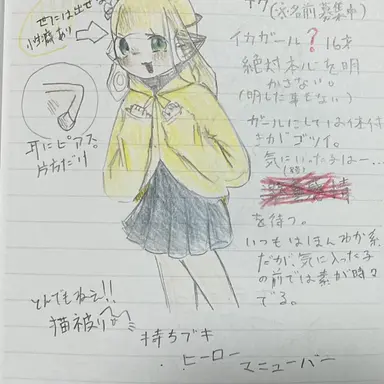 (兄名前募集中)
イカガール?16才
絶対本心を明
かさない。
(明した事もない)
ガールにしては体付
きがゴツイ。
気にいった子は…
を待つ。
いつもはほんわか系
だが、気に入った子
の前では素が時々
でる。
耳にピアス。
片方だけ
とんでもねぇ!!
猫被り
持ちブキ
・ヒーロー
マニューバー